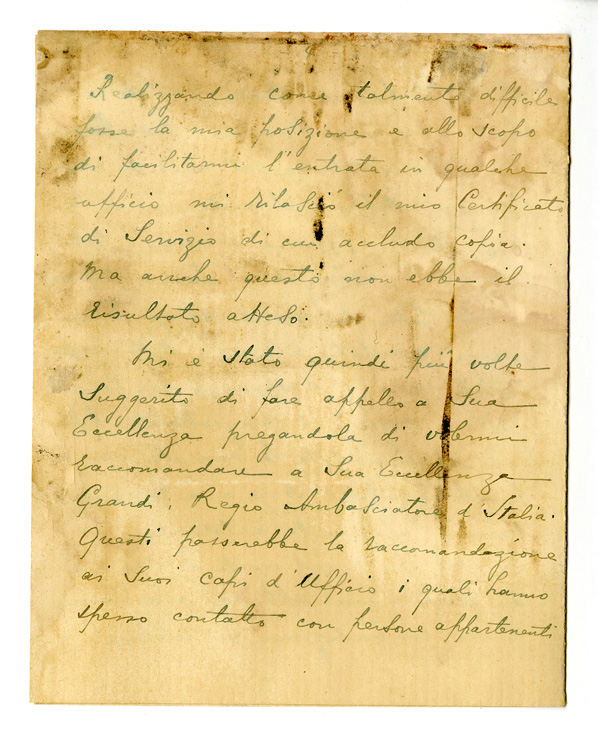 Realizzando come talmente difficile
fosse la mia posizione e allo scopo
di facilitarmi l'entrata in qualche
ufficio mi rilasciò il mio Certificato
di Servizio di cui accludo copia.
Ma anche questo non ebbe il
risultato atteso.
Mi è stato quindi più volte
suggerito di fare appello a Sua
Eccellenza pregandola di volermi
raccomandare a Sua Eccellenza
Grandi, Regio Ambasciatore d'Italia.
Questi passerebbe la raccomandazione
ai Suoi capi d'Ufficio i quali hanno
spesso contatto con persone appartenenti